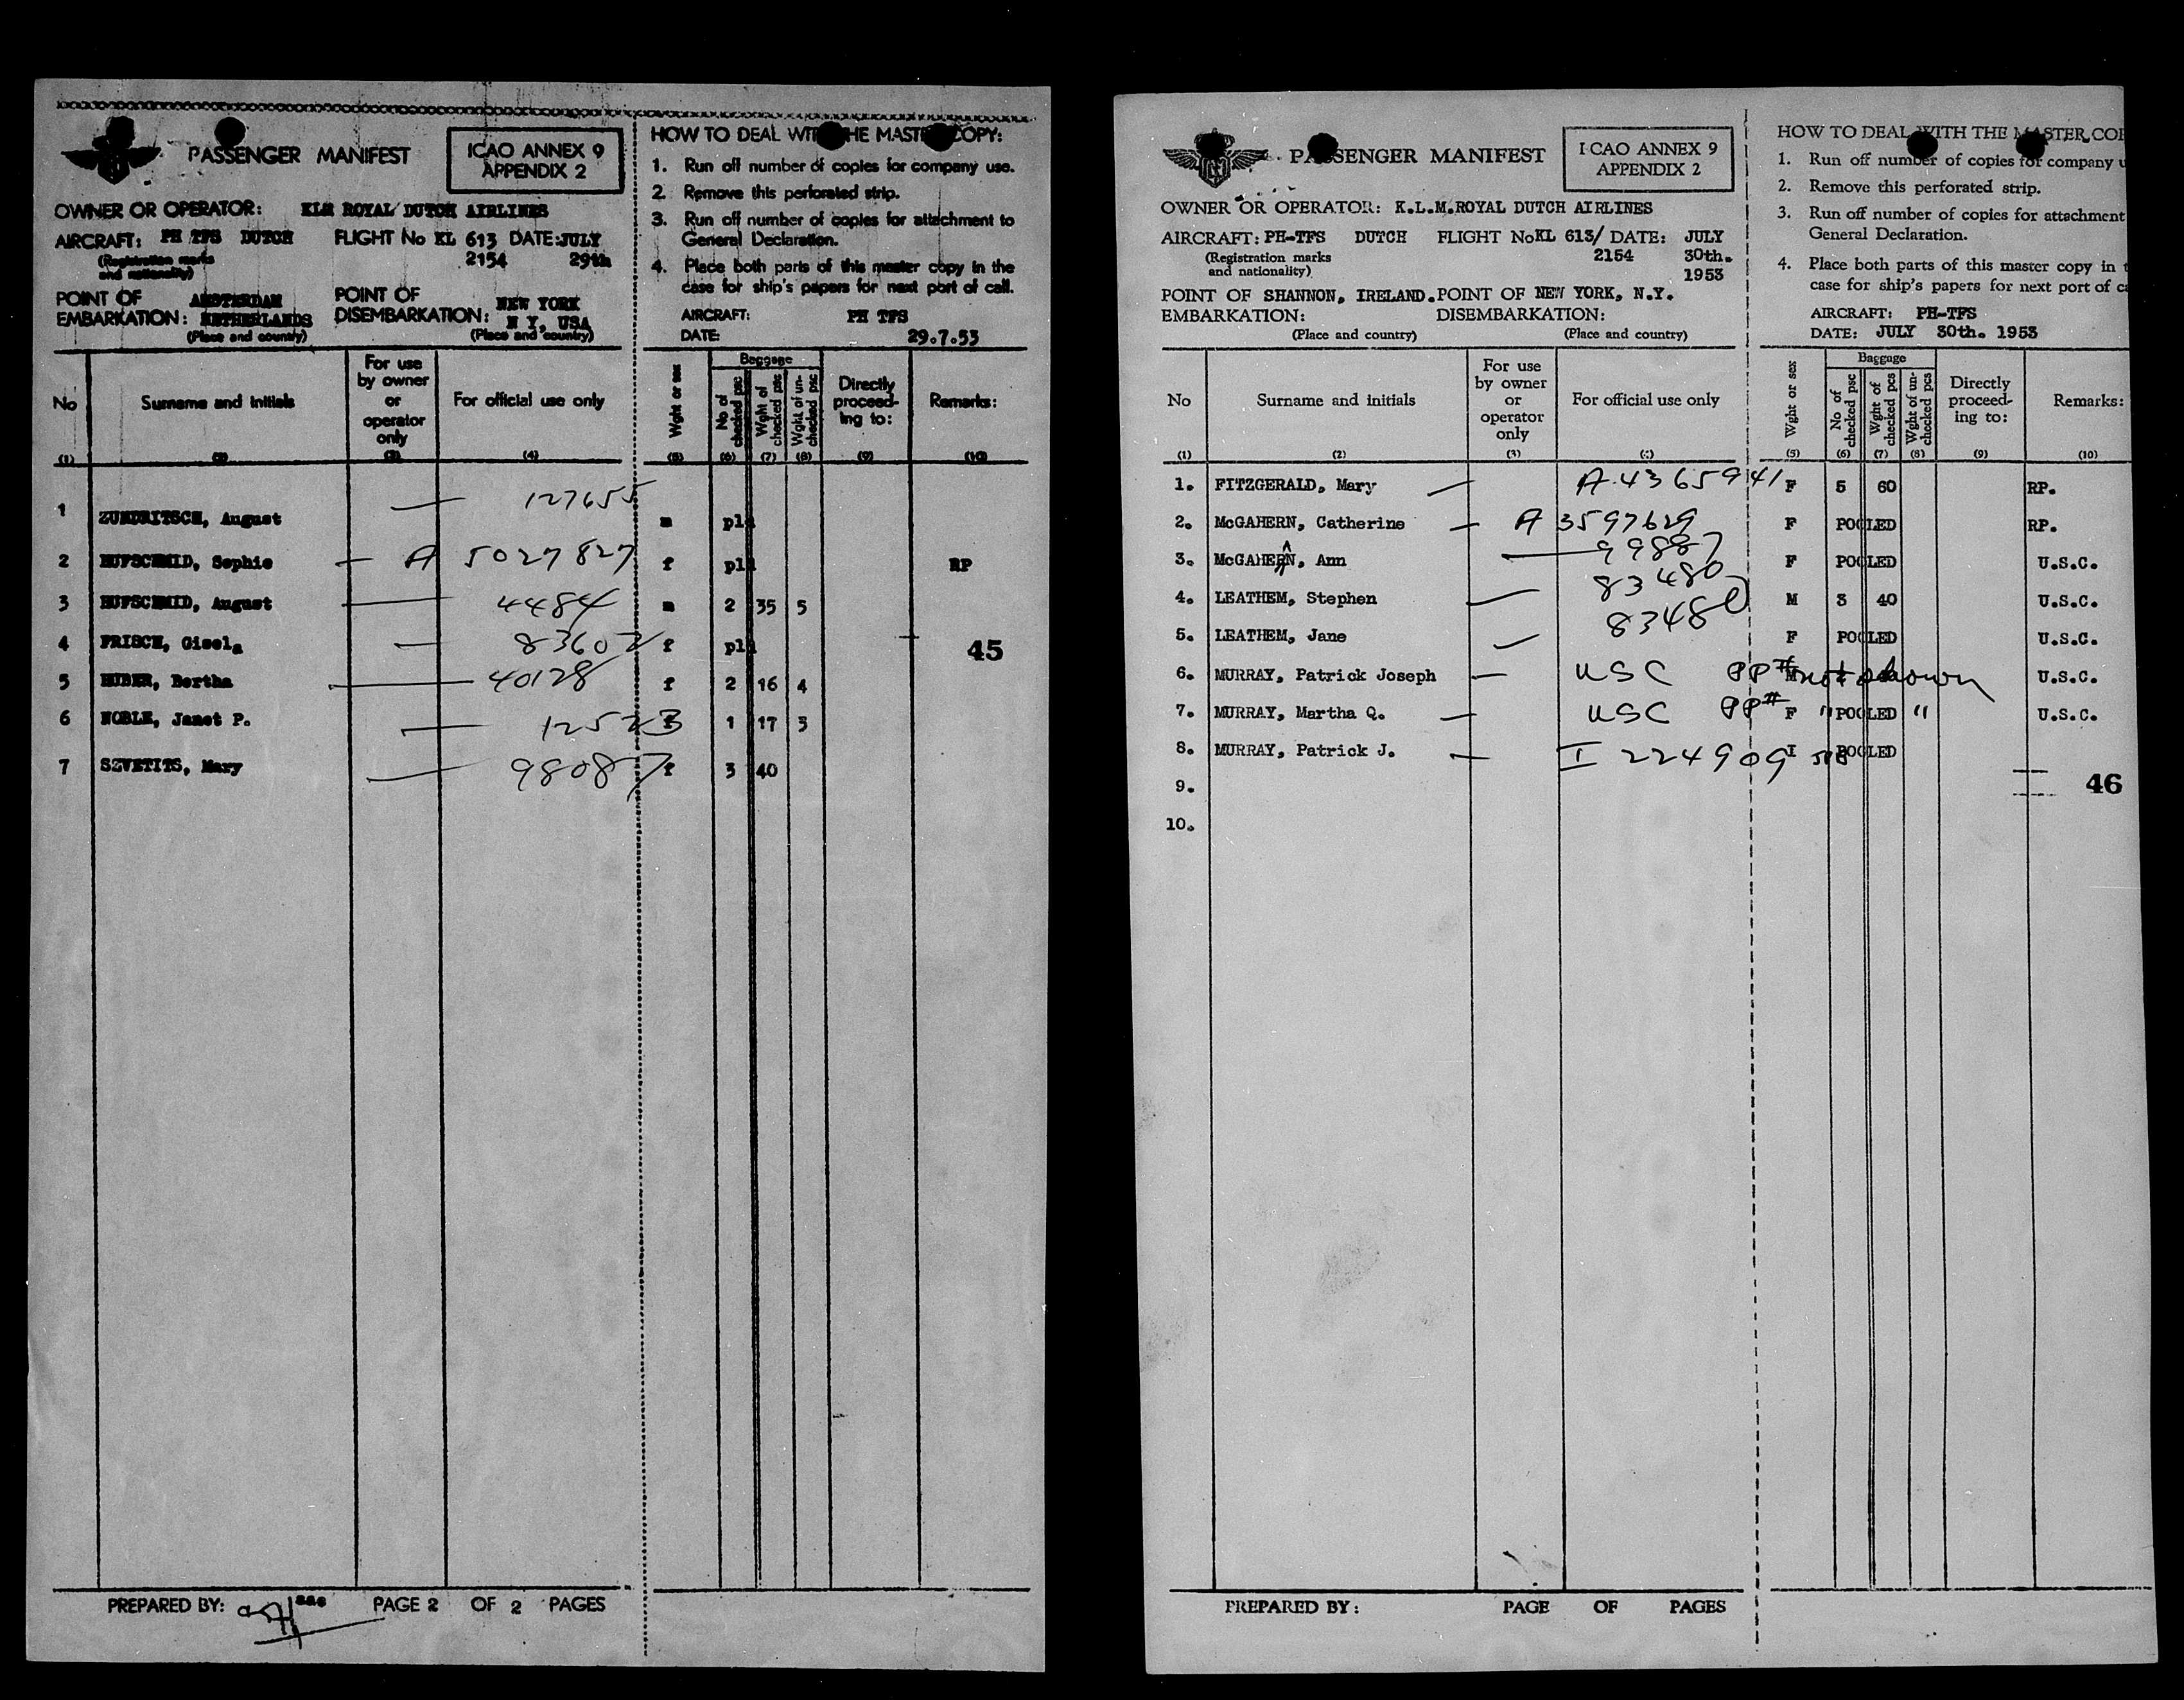 PASSENGER MANIFEST
ICAO ANNEX 9
APPENDIX 2
OWNER OR OPERATOR: KLM ROYAL DUTCH AIRLINES
AIRCRAFT: PH TFS DUTCH FLIGHT No KL 613 DATE: JULY
(Registration marks 2154 29th
and nationality)
POINT OF AMSTERDAM POINT OF NEW YORK
EMBARKATION: NETHERLANDS DISEMBARKATION: N Y, USA
(Place and country) (Place and country)
HOW TO DEAL WITH THE MASTER COPY:
1. Run off number of copies for company use.
2. Remove this perforated strip.
3. Run off number of copies for attachment to
General Declaration.
4. Place both parts of this master copy in the
case for ship's papers for next port of call.
AIRCRAFT: PH TFS
DATE: 29.7.53
No Surname and initials For use by owner or operator only For official use only Wght or sex Baggage No of checked psc Wght of checked psc Wght of un-checked psc Directly proceed-ing to: Remarks:
(1) (2) (3) (4) (5) (6) (7) (8) (9) (10)
1 ZUMDRITSCH, August — 127655 m pla
2 HUFSCHMID, Sophie — A 5027827 f pla RP
3 HUFSCHMID, August — 4484 m 2 35 5
4 FRISCH, Gisela — 83602 f pla 45
5 HUBER, Bertha — 40128 f 2 16 4
6 NOBLE, Janet P. — 12523 f 1 17 3
7 SZVETITS, Mary — 98087 f 3 40
PREPARED BY: PAGE 2 OF 2 PAGES
PASSENGER MANIFEST
ICAO ANNEX 9
APPENDIX 2
OWNER OR OPERATOR: K.L.M.ROYAL DUTCH AIRLINES
AIRCRAFT: PH-TFS DUTCH FLIGHT No KL 613/ DATE: JULY
(Registration marks 2154 30th.
and nationality) 1953
POINT OF SHANNON, IRELAND. POINT OF NEW YORK, N.Y.
EMBARKATION: DISEMBARKATION:
(Place and country) (Place and country)
HOW TO DEAL WITH THE MASTER COP
1. Run off number of copies for company u
2. Remove this perforated strip.
3. Run off number of copies for attachment
General Declaration.
4. Place both parts of this master copy in t
case for ship's papers for next port of ca
AIRCRAFT: PH-TFS
DATE: JULY 30th. 1953
No Surname and initials For use by owner or operator only For official use only Wght or sex Baggage No of checked psc Wght of checked pcs Wght of un-checked pcs Directly proceed-ing to: Remarks:
(1) (2) (3) (4) (5) (6) (7) (8) (9) (10)
1. FITZGERALD, Mary — A 4365941 F 5 60 RP.
2. McGAHERN, Catherine — A 3597629 F POOLED RP.
3. McGAHERN, Ann — 99887 F POOLED U.S.C.
4. LEATHEM, Stephen — 83480 M 3 40 U.S.C.
5. LEATHEM, Jane — 83480 F POOLED U.S.C.
6. MURRAY, Patrick Joseph — USC PP# M not shown U.S.C.
7. MURRAY, Martha Q. — USC PP# F " POOLED " U.S.C.
8. MURRAY, Patrick J. — I 224909 I POOLED
9.
46
10.
PREPARED BY: PAGE OF PAGES